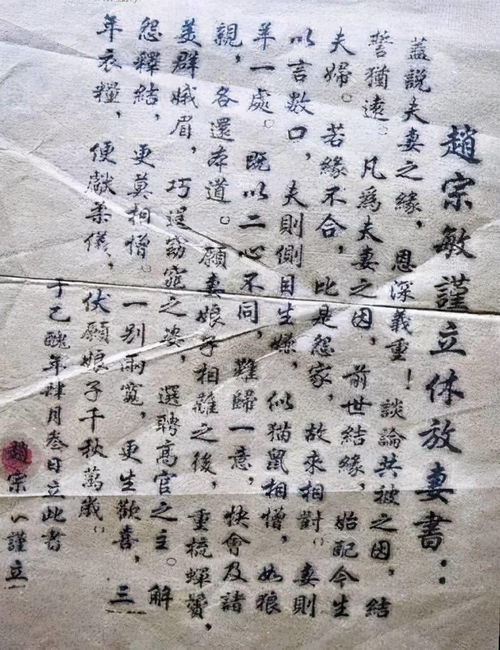 趙宗敏謹立休放妻書：
蓋說夫妻之緣，恩深義重！談論共被之因，結
誓猶遠。凡爲夫妻之因，前世結緣，始配今生
夫婦。若緣不合，比是怨家，故來相對。妻則
以言數口，夫則側目生嫌，似猫鼠相憎，如狼
羊一處。既以二心不同，難歸一意，快會及諸
親，各還本道。願妻娘子相離之後，重梳蟬鬢，
美群娥眉，巧逞窈窕之姿，選聘高官之主。解
怨釋結，更莫相憎。一別兩寬，更生歡喜，三
年衣糧，便獻柔儀，伏願娘子千秋萬歲。
于己醜年肆月叁日立此書
趙宗謹立